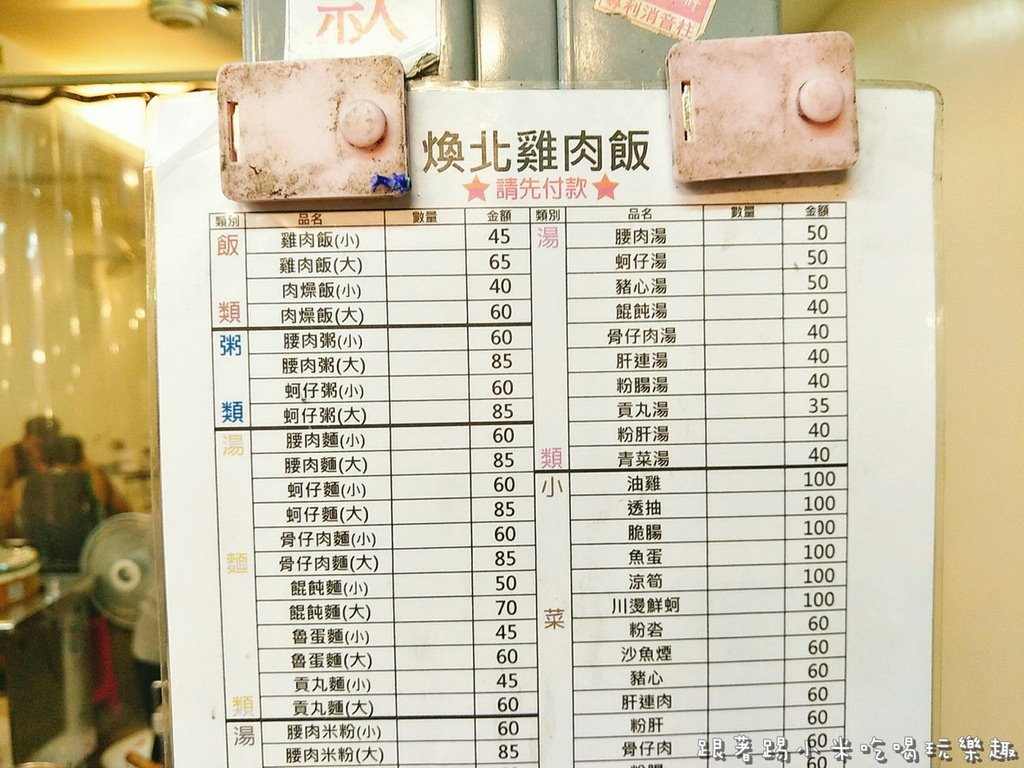 専利消音柱
煥北雞肉飯
★請先付款★
類別 品名 數量 金額
飯類
雞肉飯(小) 45
雞肉飯(大) 65
肉燥飯(小) 40
肉燥飯(大) 60
粥類
腰肉粥(小) 60
腰肉粥(大) 85
蚵仔粥(小) 60
蚵仔粥(大) 85
湯麵類
腰肉麵(小) 60
腰肉麵(大) 85
蚵仔麵(小) 60
蚵仔麵(大) 85
骨仔肉麵(小) 60
骨仔肉麵(大) 85
餛飩麵(小) 50
餛飩麵(大) 70
魯蛋麵(小) 45
魯蛋麵(大) 60
貢丸麵(小) 45
貢丸麵(大) 60
湯
腰肉米粉(小) 60
腰肉米粉(大) 85
類別 品名 數量 金額
湯類
腰肉湯 50
蚵仔湯 50
豬心湯 50
餛飩湯 40
骨仔肉湯 40
肝連湯 40
粉腸湯 40
貢丸湯 35
粉肝湯 40
青菜湯 40
小菜
油雞 100
透抽 100
脆腸 100
魚蛋 100
涼筍 100
川燙鮮蚵 100
粉沓 60
沙魚煙 60
豬心 60
肝連肉 60
粉肝 60
骨仔肉 60
跟著踢小米吃喝玩樂趣